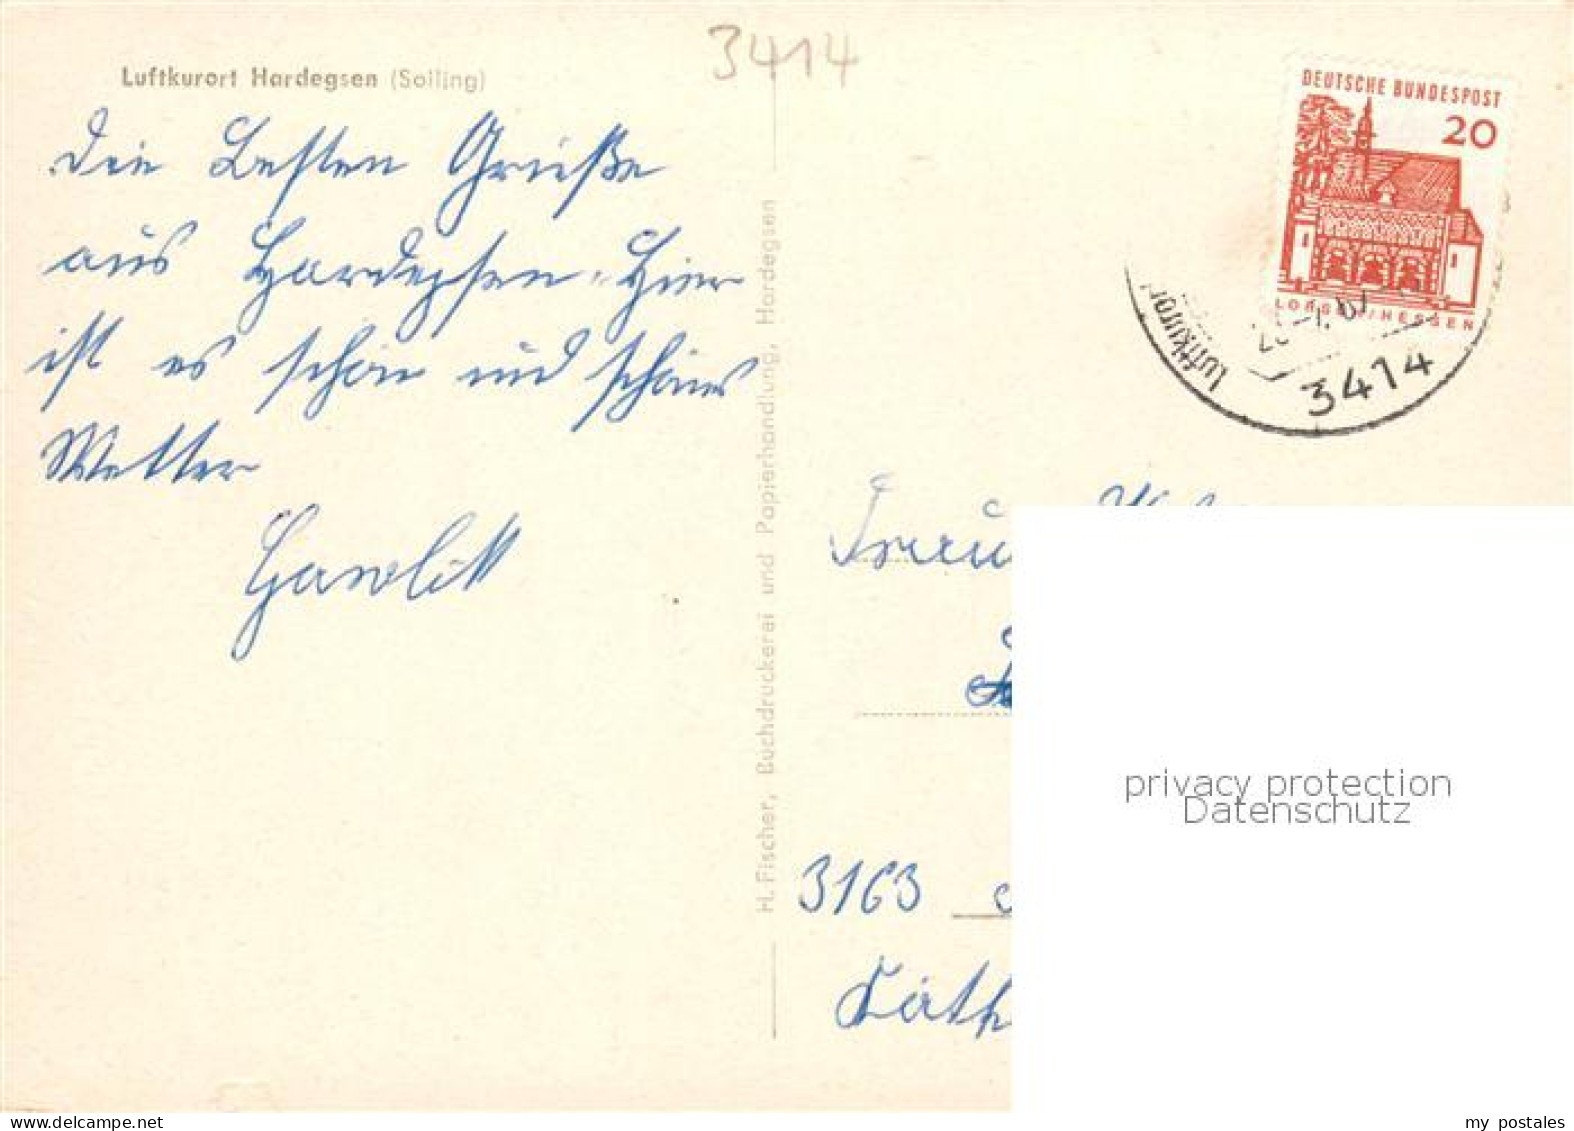 3414
Luftkurort Hardegsen (Solling)
Die Besten Grüße
aus Hardegsen. Hier
ist es schön und schönes
Wetter
H. Fischer, Buchdruckerei und Papierhandlung, Hardegsen
DEUTSCHE BUNDESPOST
20
LORSCH/HESSEN
Luftkuror
3414
Frau
3163
privacy protection
Datenschutz
my postales